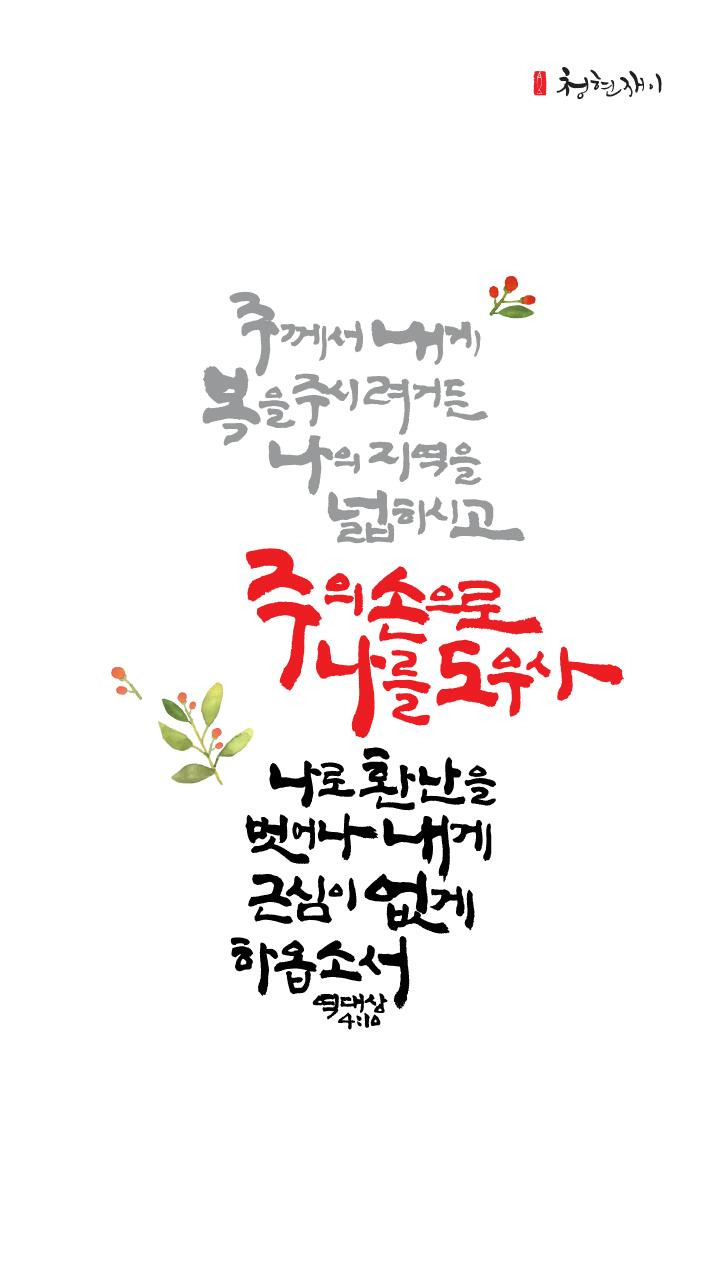 청현재이
주께서 내게
복을 주시려거든
나의 지역을
넓히시고
주의 손으로
나를 도우사
나로 환난을
벗어나 내게
근심이 없게
하옵소서
역대상
4:10